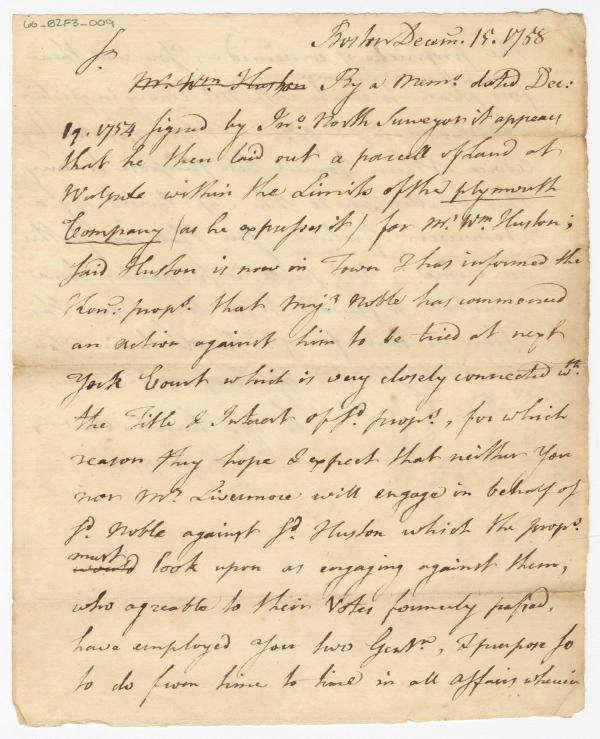 60-B2F3-009
Boston Decemr. 15. 1758
Sr
Mr. Wm. Huston By a Memo. dated Dec:
19. 1754 signed by Jno. North Surveyor it appears
that he then laid out a parcell of Land at
Walpole within the Limits of the plymouth
Company (as he expresses it) for Mr. Wm. Huston;
said Huston is now in Town & has informed the
Kene: props. that Majr. Noble has commenced
an action against him to be tried at next
York Court which is very closely connected wth.
the Title & Interest of sd. props., for which
reason they hope & expect that neither You
nor Mr. Livermore will engage in behalf of
sd. Noble against sd. Huston which the props.
must
would look upon as engaging against them,
who agreable to their Votes formerly passed,
have employed you two Gentn., & purpose so
to do from time to time in all affairs wherein